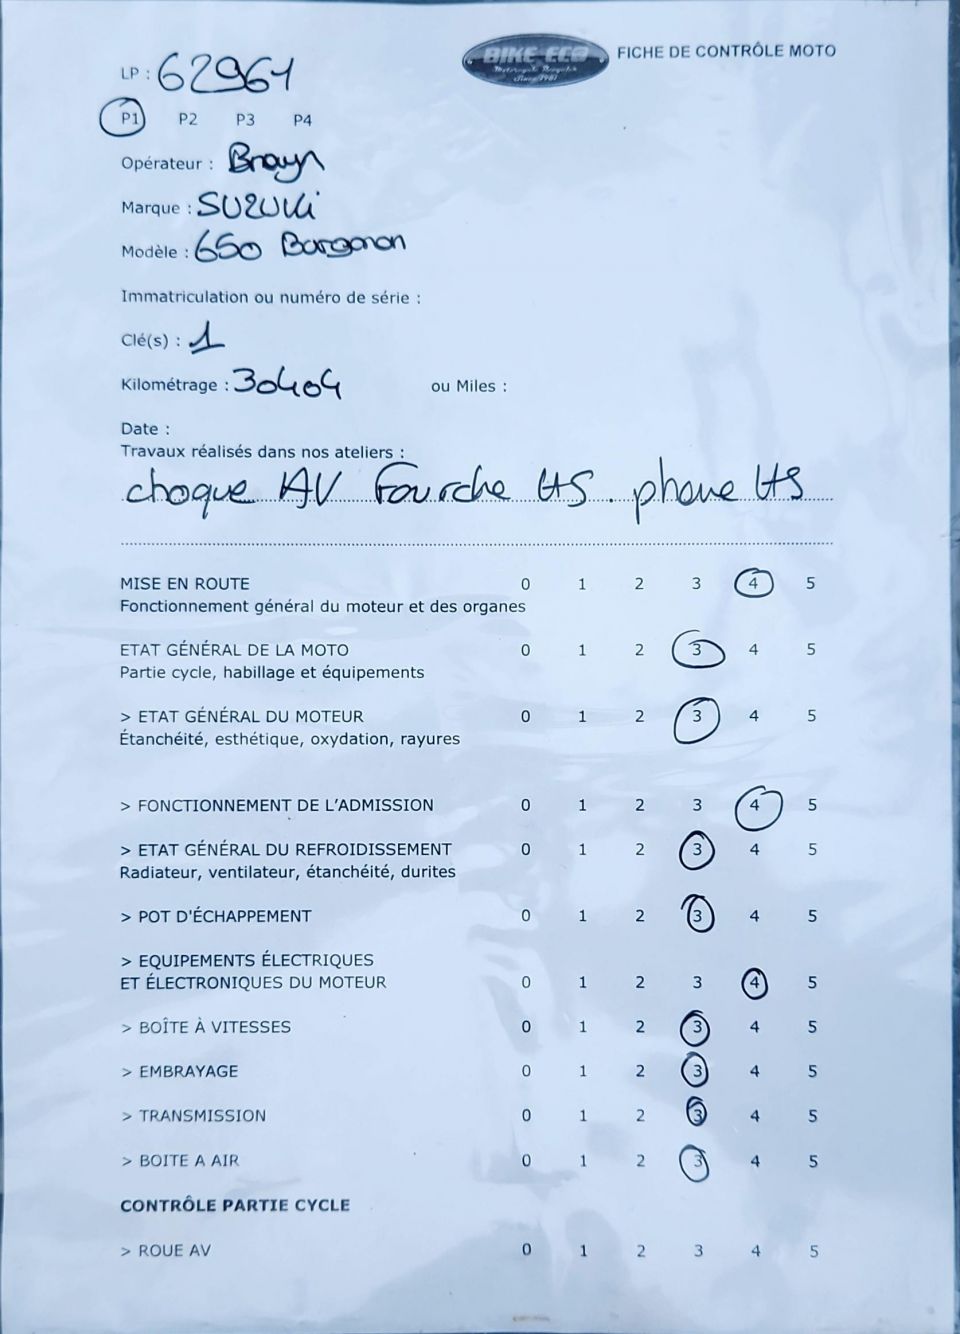 BIKE-ECO
Motorcycle Recycler
Since 1981
FICHE DE CONTRÔLE MOTO
LP : 62961
P1 P2 P3 P4
Opérateur : Brayn
Marque : SUZUKi
Modèle : 650 Bargman
Immatriculation ou numéro de série :
Clé(s) : 1
Kilométrage : 30404 ou Miles :
Date :
Travaux réalisés dans nos ateliers :
choque AV Fourche HS. phare HS
MISE EN ROUTE 0 1 2 3 4 5
Fonctionnement général du moteur et des organes
ETAT GÉNÉRAL DE LA MOTO 0 1 2 3 4 5
Partie cycle, habillage et équipements
> ETAT GÉNÉRAL DU MOTEUR 0 1 2 3 4 5
Étanchéité, esthétique, oxydation, rayures
> FONCTIONNEMENT DE L'ADMISSION 0 1 2 3 4 5
> ETAT GÉNÉRAL DU REFROIDISSEMENT 0 1 2 3 4 5
Radiateur, ventilateur, étanchéité, durites
> POT D'ÉCHAPPEMENT 0 1 2 3 4 5
> EQUIPEMENTS ÉLECTRIQUES
ET ÉLECTRONIQUES DU MOTEUR 0 1 2 3 4 5
> BOÎTE À VITESSES 0 1 2 3 4 5
> EMBRAYAGE 0 1 2 3 4 5
> TRANSMISSION 0 1 2 3 4 5
> BOITE A AIR 0 1 2 3 4 5
CONTRÔLE PARTIE CYCLE
> ROUE AV 0 1 2 3 4 5